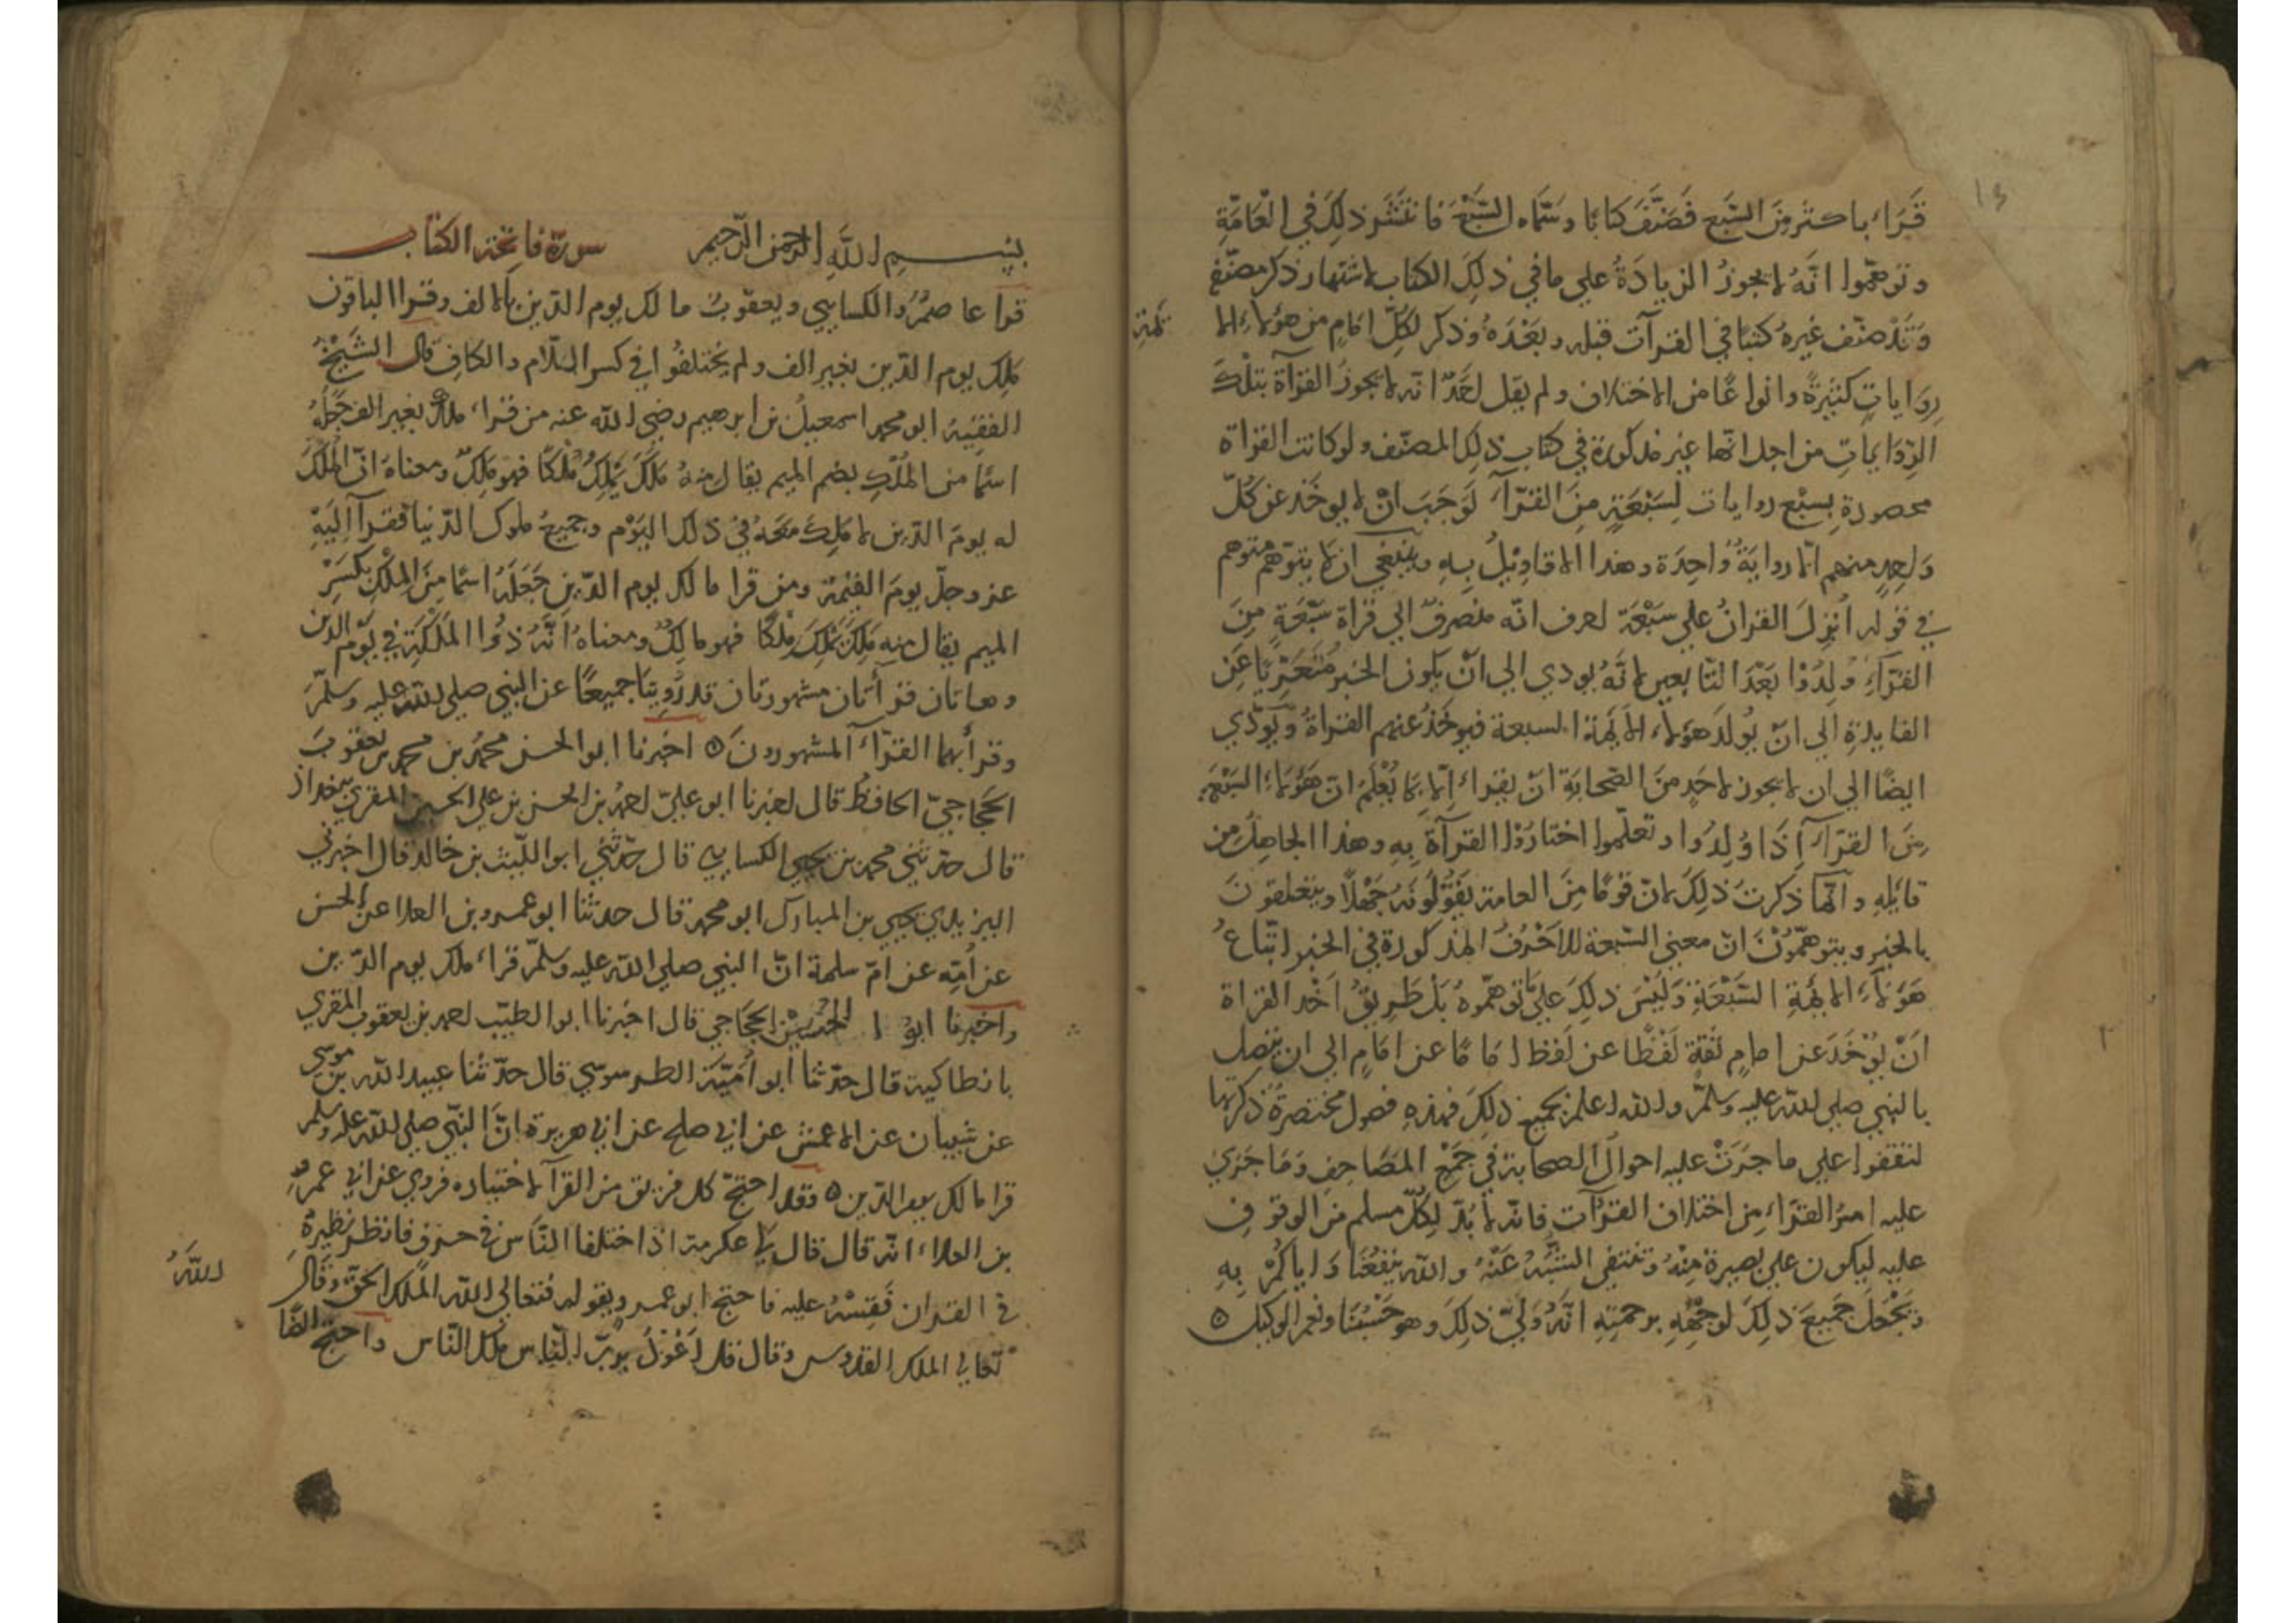 قَرَاء باكثر مِنَ السَّبع فَصَنَّفَ كتابًا وسَمَّاه السَّبْعَ فانتشر ذلِكَ في الْعَامَّةِ
وتوهّموا انَّهُ لا يجوزُ الزيادَةُ علي ما في ذلِكَ الكتاب لاشتهار ذكر مصنّفه
وَقَدْ صنّف غيرهُ كتبًا في القرآت قبله وبَعْدَهُ وذكر لكلّ امَامٍ من هؤلاء الا
ئمة
رِوَاياتٍ كثيرةً وانواعًا من الاختلاف ولم يقل احَدٌ انّه لا يجوزُ القرآة بتلْكَ
الرِّوَاياتِ من اجل انّها غير مذكورة في كتاب ذلِكَ المصنّف ولو كانت القراة
محصورةٍ بِسبْعِ روايات لِسَبْعَةٍ مِنَ القُرّآء لَوَجَبَ انْ لا يوخَذ عن كلّ
وَاحِدٍ منهم الّا روايَةٌ واحِدَة وهذا لا قاوِئِلُ بِهِ وينبغي ان لا يتوَهّم متوهم
في قوله اُنْزِلَ القرانُ علي سَبْعَة احرف انّه منصرفٌ الي قراة سَبْعَةٍ مِنَ
القُرّاءِ وُلِدُوْا بَعْدَ التّابعين لانَّهُ يودي الي انْ يكون الخبرُ مُتَعَرِّيًا عَنِ
الفايدةِ الي انْ يُولَدَ هَؤلاء الائِمّة السبعة فيوخَذُ عنهم القراةُ ويُوَدِّي
ايضًا الي ان لا يجوز لاحَدٍ مِنَ الصّحَابَةِ انْ يقراءَ الّا بمَا يُعْلَمُ انّ هَؤلاءِ السّبْعَةِ
مِنَ القرّاء اِذَا وُلِدُوا وتعلّموا اختارُوْا القرآةَ بِهِ وهذا الجاهل من
قايلِهِ وانّما ذكرتُ ذلِكَ لانّ قومًا مِنَ العامة يَقُوْلُونَهُ جَهْلًا ويتعلقونَ
بالخبر ويتوهّمُوْنَ انّ معني السّبعة للاَحْرُفُ المذكورة في الخبر اتّباعُ
هَؤلاءِ الائِمّةِ السّبْعَةِ وَلَيْسَ ذلِكَ علي ما توهّموهُ بَلْ طَرِيقُ اَخْذِ القراة
اَنْ يُوْخَذَ عن امامٍ ثقة لَفْظًا عن لَفظ امامًا عن امَامٍ الي ان يتصل
بالنبي صلي الله عليه وسلّم والله اعلم بجميع ذلِكَ فهذهِ فصول مختصرةٌ ذكرتها
لتقفوا علي ما جرَتْ عليه احوالُ الصحابة في جَمْعِ المَصَاحِفِ وَمَا جَرَي
عليه امرُ القرّاء مِنِ اختلاف القرآت فانّه لا بُدّ لِكلّ مسلم من الوقوفِ
عليه ليكون علي بصيرة مِنْهُ وتنتفي الشُّبَهُ عَنْهُ والله ينفَعُنَا وَاياكُمْ بِهِ
ويَجْعَلَ جَمِيعَ ذلِكَ لوجْهِهِ برحمتِهِ انَّهُ وَلِيّ ذلِكَ وهو حَسْبُنَا ونعم الوكيل ٥
بِسْمِ اللَّهِ الرحمن الرَّحيم سورة فاتحة الكتاب
قرا عاصمٌ والكسايي ويعقوبُ مالك يوم الدّين بالالف وقرا الباقون
مَلِك يوم الدّين بغير الف ولم يختلفُوا في كسر اللّام والكاف قال الشَّيْخُ
الفقيه ابو محمد اسمعيلُ بن ابرهيم رضي الله عنه من قراء ملك بغير الف جَعَلَهُ
اسْمًا من المُلْكِ بضم الميم يقال منهُ مَلَكَ يَمْلِكُ مُلْكًا فهو مَلِكٌ ومعناهُ انّ المُلْكَ
له يومَ الدّين لا مَلِكَ معَهُ في ذلك اليَوْمِ وجميعُ ملوك الدّنيا فقرآ اِلَيْهِ
عز وجلّ يومَ القيمة ومن قرا مالك يوم الدّين جَعَلَهُ اسْمًا مِنَ المِلْكِ بكسْرِ
الميم يقال منه مَلَكَ يَمْلِكُ مِلْكًا فهو مالِكٌ ومعناه انَّهُ ذُوا المَمْلَكَةِ في يَوْمِ الدين
وهاتان قرأتان مشهورتان قد رُوِيَتَا جميعًا عن النبي صلي الله عليه وسلّمَ
وقرأ بهما القرّآء المشهورونَ ٥ اخبرنا ابو الحسن محمّدُ بن محمد بن يعقوبَ
الحَجّاجيّ الحافظُ قال اخبرنا ابو عليّ احمدُ بن الحسن بن علي المقري ببغداذ
قال حدّثني محمد بن يحيي الكسايي قال حدّثني ابو اللّيث بن خالد قال اخبرني
اليزيدي يحيي بن المبارك ابو محمد قال حدثنا ابو عمرو بن العلا عن الحسن
عن اُمّهِ عن امّ سلمة انّ النبي صلي الله عليه وسلّمَ قراءَ ملك يوم الدّين
واخبرنا ابو الحُسَيْن الحجّاجي قال اخبَرنا ابو الطيّب احمد بن يعقوب المقري
بانطاكية قال حدّثنا ابو اُمَيّةَ الطرسوسي قال حدّثنا عبيد الله بن موسي
عن شيبان عن الاعمش عن ابي صلح عن ابي هريرة انَّ النّبي صلي الله عليه وسلم
قرا مالك يوم الدّين ٥ وقد احتجّ كل فريق من القرآء لاختياره فروي عن ابي عمرو
بن العلاء انّه قال قال لي عكرمة اذا اختلفا النَّاس في حرفٍ فانظر نظيرهُ
في القران فَقِسْهُ عليه فاحتج ابو عمرو بقوله فتعالي الله الملك الحق وقالَ
اللهُ
تعالي الملك القدّوس وقال قل اَعُوْذُ بِرَبِّ النّاس ملك النّاس واحتجّ